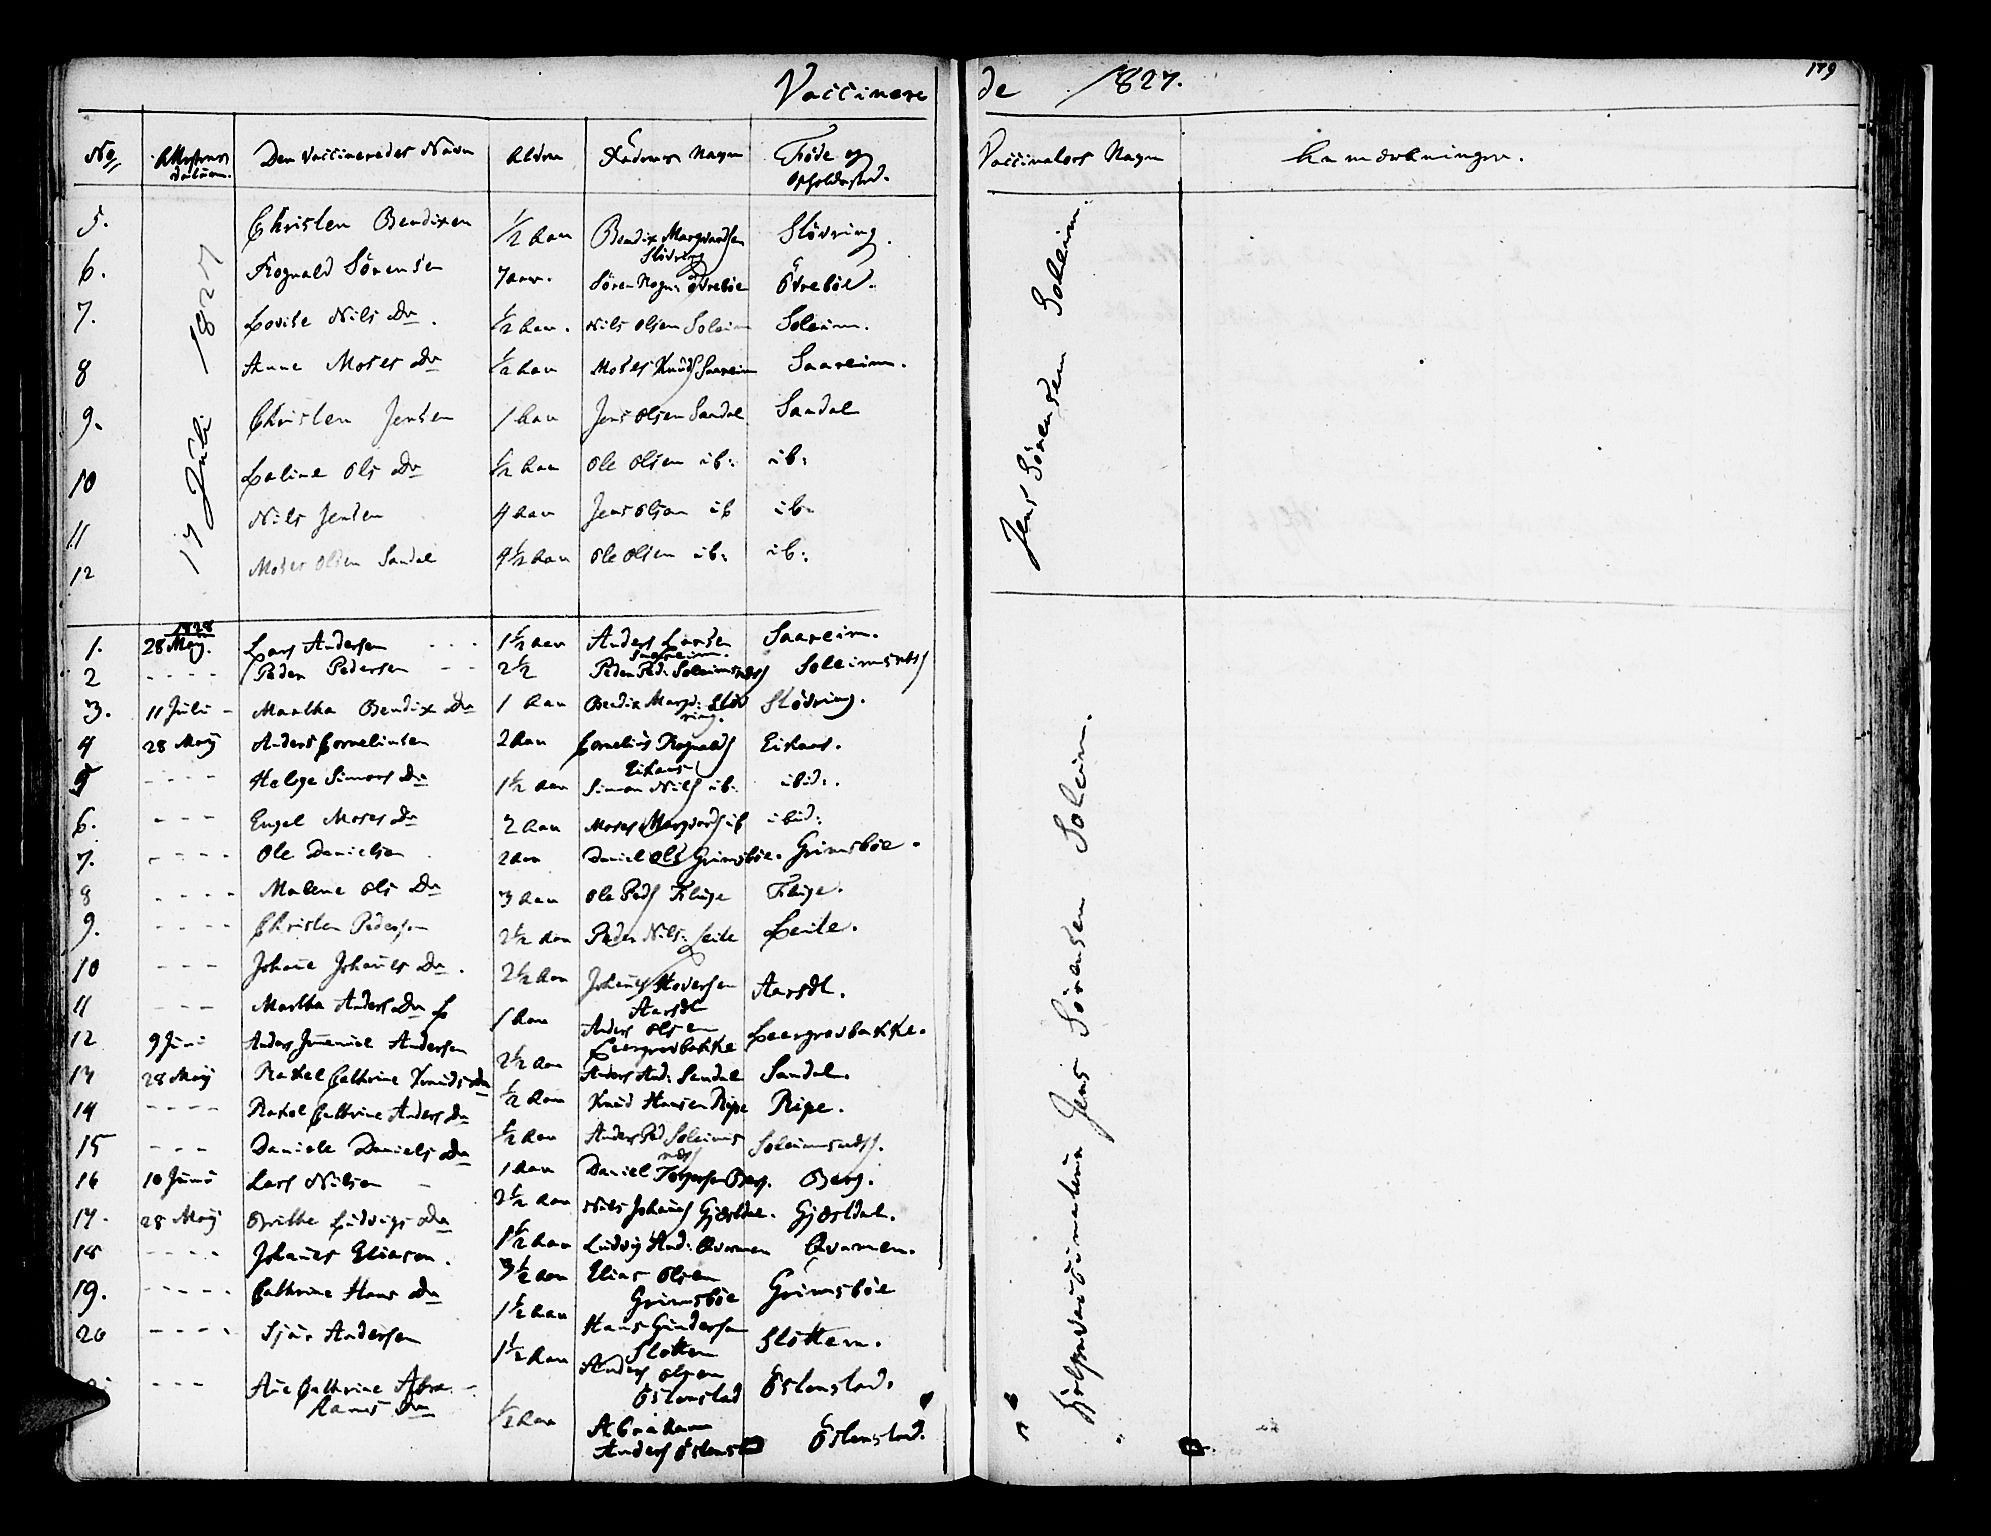 Vaccinere de 1827.
179
No Attestens datum. Den Vaccineredes Navn Alder Fadrens Navn Føde og Opholdssted. Vaccinateurs Navn Anmærkninger.
17 Juli 1827
5. Christen Bendixen 1/2 Aar Bendix Marqvardsen Slövring Slövring.
6. Rognald Sörensen 7 aar. Sören Rogn: Övreböe Övreböe.
7. Lovise Nils Dr. 1/2 Aar. Nils Olsen Soleim Soleim.
8 Anne Moses Dr 1/2 Aar Moses Knuds Saareim Saareim.
9. Christen Jensen 1 Aar Jens Olsen Sandal Sandal
10 Laline Ols Dr 1/2 Aar Ole Olsen ib: ib:
11 Nils Jensen 4 Aar Jens Olsen ib ib:
12 Moses Olsen Sandal 4 1/2 Aar Ole Olsen ib: ib:
Jens Sörensen Soleim.
1828
1. 28 Maÿ. Lars Andersen 1 1/2 Aar Anders Larsen Saareim. Saareim.
2 - - - - Peder Pedersen - - 2 1/2 Peder Ped: Soleimsnds Soleimsnds
3. 11 Juli - Maatha Bendix Dr 1 Aar Bendix Marqv: Slövring. Slövring.
4 28 Maÿ Anders Cornelinsen 2 Aar Cornelius Rognalds Eikaas Eikaas.
5 - - - - Helege Simons Dr 1 1/2 Aar Simon Nils ib: ibid:.
6. - - - Engel Moses Dr 2 Aar Moses Marqvards ib ibid:
7. - - - - Ole Danielsen 2 aar Daniel Ols Grimsböe. Grimsböe.
8 - - - - Malene Ols Dr 3 Aar Ole Peds Fluge Fluge.
9. - - - - Christen Pedersen 2 1/2 Aar Peder Nils: Leite Leite.
10 - - - Johane Johanes Dr. 2 1/2 Aar Johanes Hoversen Aarsdl Aarsdl.
11 - - - Martha Anders Dr 1 Aar Anders Olsen Leergrovbakke Leergrovbakke.
12 9 Juni Anders Andersen 2 1/2 Aar Anders And: Sandal Sandal.
13 28 Maÿ Rakel Cathrine Knuds Dr 1/2 Aar Knud Hansen Ripe Ripe.
14 - - - - Rakel Cathrine Anders Dr 1/2 Aar Anders Ped Soleimsnds Soleimsnds.
15 - - - Daniele Daniels Dr 1 Aar Daniel Torgersen Berg. Berg.
16 10 Juni Lars Nilsen 2 1/2 Aar Nils Johanes Gjæsdal. Gjæsdal.
17. 28 Maÿ Brithe Ludvigs Dr 1 1/2 Aar Ludvig And: Qvamen Qvamen.
18 - - - - Johanes Eliasen. 3 1/2 Aar Elias Olsen Grimsböe Grimsböe
19. - - - - - Cathrine Hans Dr 1 1/2 Aar Hans Gundersen Slotten Slotten.
20 - - - - Sjur Andersen 1 1/2 Aar Anders Olsen Östenstad Östenstad.
- - - Ane Cathrine Abrahams Dr 1/2 Aar Abraham Anders Östenst Östenstad.
Hjelpevaccinateur Jens Sörensen Soleim.